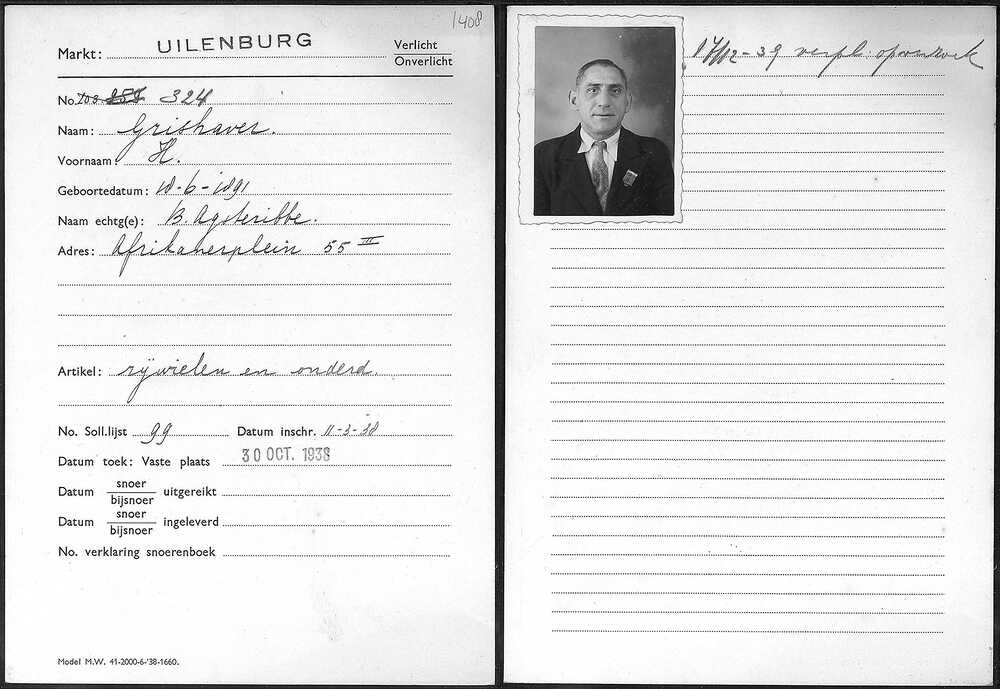 1408
Markt: UILENBURG Verlicht
Onverlicht
No. 703 258 324
Naam: Grishaver.
Voornaam: H.
Geboortedatum: 18-6-1891
Naam echtg(e): B. Agsteribbe.
Adres: Afrikanerplein 55 III
Artikel: rijwielen en onderd.
No. Soll.lijst 99 Datum inschr. 11-3-38
Datum toek: Vaste plaats 30 OCT. 1938
Datum snoer
bijsnoer uitgereikt
Datum snoer
bijsnoer ingeleverd
No. verklaring snoerenboek
Model M.W. 41-2000-6-'38-1660.
17/12-39 verpl. op verzoek